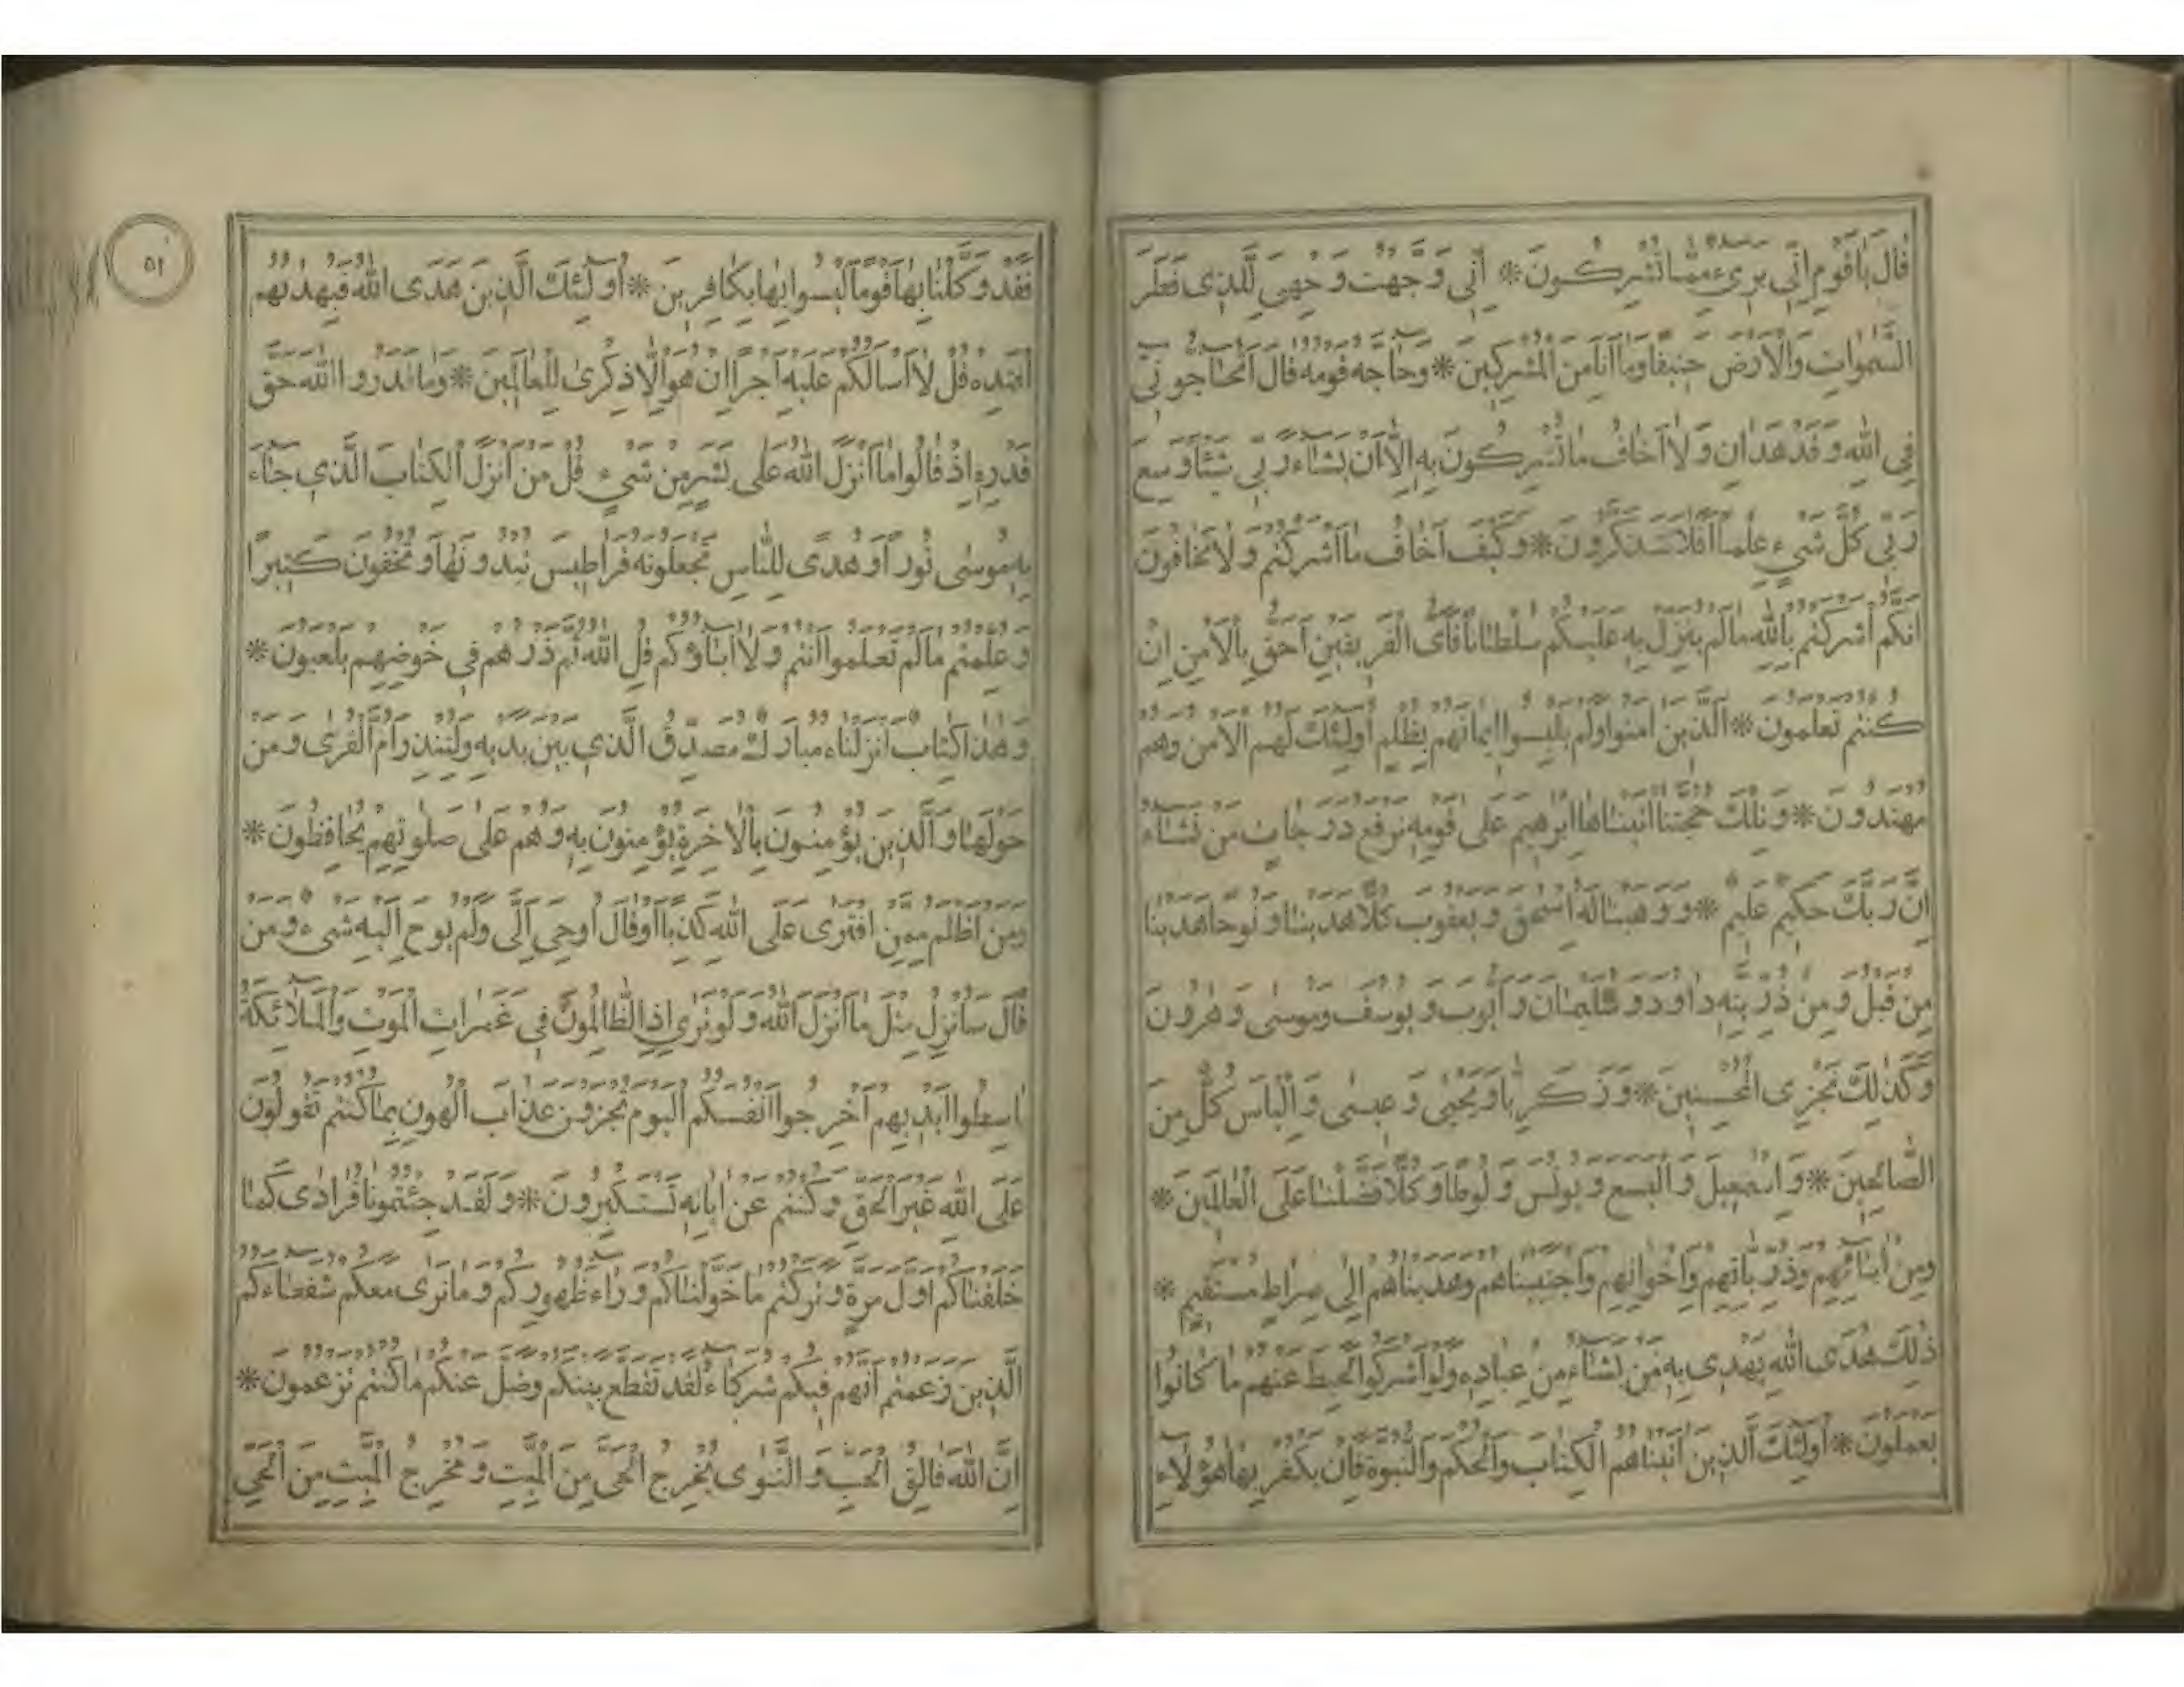 قَالَ يَا قَوْمِ اِنّي بَريءٌ مِمَّا تُشْرِكُونَ * اِنّي وَجَّهْتُ وَجْهِيَ لِلَّذي فَطَرَ
السَّمٰوَاتِ وَالْاَرْضَ حَنيفًا وَمَا اَنَا مِنَ الْمُشْرِكينَ * وَحَاجَّهُ قَوْمُهُ قَالَ اَتُحَاجُّونّي
فِي اللّٰهِ وَقَدْ هَدَانِ وَلَا اَخَافُ مَا تُشْرِكُونَ بِهِ اِلَّا اَنْ يَشَاءَ رَبّي شَيْئًا وَسِعَ
رَبّي كُلَّ شَيْءٍ عِلْمًا اَفَلَا تَتَذَكَّرُونَ * وَكَيْفَ اَخَافُ مَا اَشْرَكْتُمْ وَلَا تَخَافُونَ
اَنَّكُمْ اَشْرَكْتُمْ بِاللّٰهِ مَا لَمْ يُنَزِّلْ بِهِ عَلَيْكُمْ سُلْطَانًا فَاَيُّ الْفَريقَيْنِ اَحَقُّ بِالْاَمْنِ اِنْ
كُنْتُمْ تَعْلَمُونَ * اَلَّذينَ اٰمَنُوا وَلَمْ يَلْبِسُوا ايمَانَهُمْ بِظُلْمٍ اُولٰئِكَ لَهُمُ الْاَمْنُ وَهُمْ
مُهْتَدُونَ * وَتِلْكَ حُجَّتُنَا اٰتَيْنَاهَا اِبْرٰهيمَ عَلٰى قَوْمِهِ نَرْفَعُ دَرَجَاتٍ مَنْ نَشَاءُ
اِنَّ رَبَّكَ حَكيمٌ عَليمٌ * وَوَهَبْنَا لَهُ اِسْحٰقَ وَيَعْقُوبَ كُلًّا هَدَيْنَا وَنُوحًا هَدَيْنَا
مِنْ قَبْلُ وَمِنْ ذُرِّيَّتِهِ دَاوُدَ وَسُلَيْمَانَ وَاَيُّوبَ وَيُوسُفَ وَمُوسٰى وَهٰرُونَ
وَكَذٰلِكَ نَجْزِي الْمُحْسِنينَ * وَزَكَرِيَّا وَيَحْيٰى وَعيسٰى وَاِلْيَاسَ كُلٌّ مِنَ
الصَّالِحينَ * وَاِسْمٰعيلَ وَالْيَسَعَ وَيُونُسَ وَلُوطًا وَكُلًّا فَضَّلْنَا عَلَى الْعَالَمينَ *
وَمِنْ اٰبَائِهِمْ وَذُرِّيَّاتِهِمْ وَاِخْوَانِهِمْ وَاجْتَبَيْنَاهُمْ وَهَدَيْنَاهُمْ اِلٰى صِرَاطٍ مُسْتَقيمٍ *
ذٰلِكَ هُدَى اللّٰهِ يَهْدي بِهِ مَنْ يَشَاءُ مِنْ عِبَادِهِ وَلَوْ اَشْرَكُوا لَحَبِطَ عَنْهُمْ مَا كَانُوا
يَعْمَلُونَ * اُولٰئِكَ الَّذينَ اٰتَيْنَاهُمُ الْكِتَابَ وَالْحُكْمَ وَالنُّبُوَّةَ فَاِنْ يَكْفُرْ بِهَا هٰؤُلَاءِ
٥١
فَقَدْ وَكَّلْنَا بِهَا قَوْمًا لَيْسُوا بِهَا بِكَافِرينَ * اُولٰئِكَ الَّذينَ هَدَى اللّٰهُ فَبِهُدٰيهُمُ
اقْتَدِهْ قُلْ لَا اَسْاَلُكُمْ عَلَيْهِ اَجْرًا اِنْ هُوَ اِلَّا ذِكْرٰى لِلْعَالَمينَ * وَمَا قَدَرُوا اللّٰهَ حَقَّ
قَدْرِهِ اِذْ قَالُوا مَا اَنْزَلَ اللّٰهُ عَلٰى بَشَرٍ مِنْ شَيْءٍ قُلْ مَنْ اَنْزَلَ الْكِتَابَ الَّذي جَاءَ
بِهِ مُوسٰى نُورًا وَهُدًى لِلنَّاسِ تَجْعَلُونَهُ قَرَاطيسَ تُبْدُونَهَا وَتُخْفُونَ كَثيرًا
وَعُلِّمْتُمْ مَا لَمْ تَعْلَمُوا اَنْتُمْ وَلَا اٰبَاؤُكُمْ قُلِ اللّٰهُ ثُمَّ ذَرْهُمْ في خَوْضِهِمْ يَلْعَبُونَ *
وَهٰذَا كِتَابٌ اَنْزَلْنَاهُ مُبَارَكٌ مُصَدِّقُ الَّذي بَيْنَ يَدَيْهِ وَلِتُنْذِرَ اُمَّ الْقُرٰى وَمَنْ
حَوْلَهَا وَالَّذينَ يُؤْمِنُونَ بِالْاٰخِرَةِ يُؤْمِنُونَ بِهِ وَهُمْ عَلٰى صَلٰوتِهِمْ يُحَافِظُونَ *
وَمَنْ اَظْلَمُ مِمَّنِ افْتَرٰى عَلَى اللّٰهِ كَذِبًا اَوْ قَالَ اُوحِيَ اِلَيَّ وَلَمْ يُوحَ اِلَيْهِ شَيْءٌ وَمَنْ
قَالَ سَاُنْزِلُ مِثْلَ مَا اَنْزَلَ اللّٰهُ وَلَوْ تَرٰى اِذِ الظَّالِمُونَ في غَمَرَاتِ الْمَوْتِ وَالْمَلٰائِكَةُ
بَاسِطُوا اَيْديهِمْ اَخْرِجُوا اَنْفُسَكُمُ الْيَوْمَ تُجْزَوْنَ عَذَابَ الْهُونِ بِمَا كُنْتُمْ تَقُولُونَ
عَلَى اللّٰهِ غَيْرَ الْحَقِّ وَكُنْتُمْ عَنْ اٰيَاتِهِ تَسْتَكْبِرُونَ * وَلَقَدْ جِئْتُمُونَا فُرَادٰى كَمَا
خَلَقْنَاكُمْ اَوَّلَ مَرَّةٍ وَتَرَكْتُمْ مَا خَوَّلْنَاكُمْ وَرَاءَ ظُهُورِكُمْ وَمَا نَرٰى مَعَكُمْ شُفَعَاءَكُمُ
الَّذينَ زَعَمْتُمْ اَنَّهُمْ فيكُمْ شُرَكَاءُ لَقَدْ تَقَطَّعَ بَيْنَكُمْ وَضَلَّ عَنْكُمْ مَا كُنْتُمْ تَزْعُمُونَ *
اِنَّ اللّٰهَ فَالِقُ الْحَبِّ وَالنَّوٰى يُخْرِجُ الْحَيَّ مِنَ الْمَيِّتِ وَمُخْرِجُ الْمَيِّتِ مِنَ الْحَيِّ